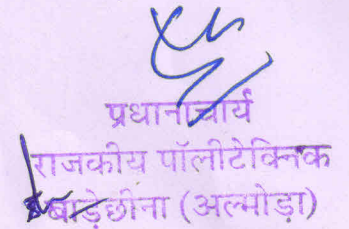 प्रधानाचार्य
राजकीय पॉलीटेक्निक
बाड़ेछीना (अल्मोड़ा)